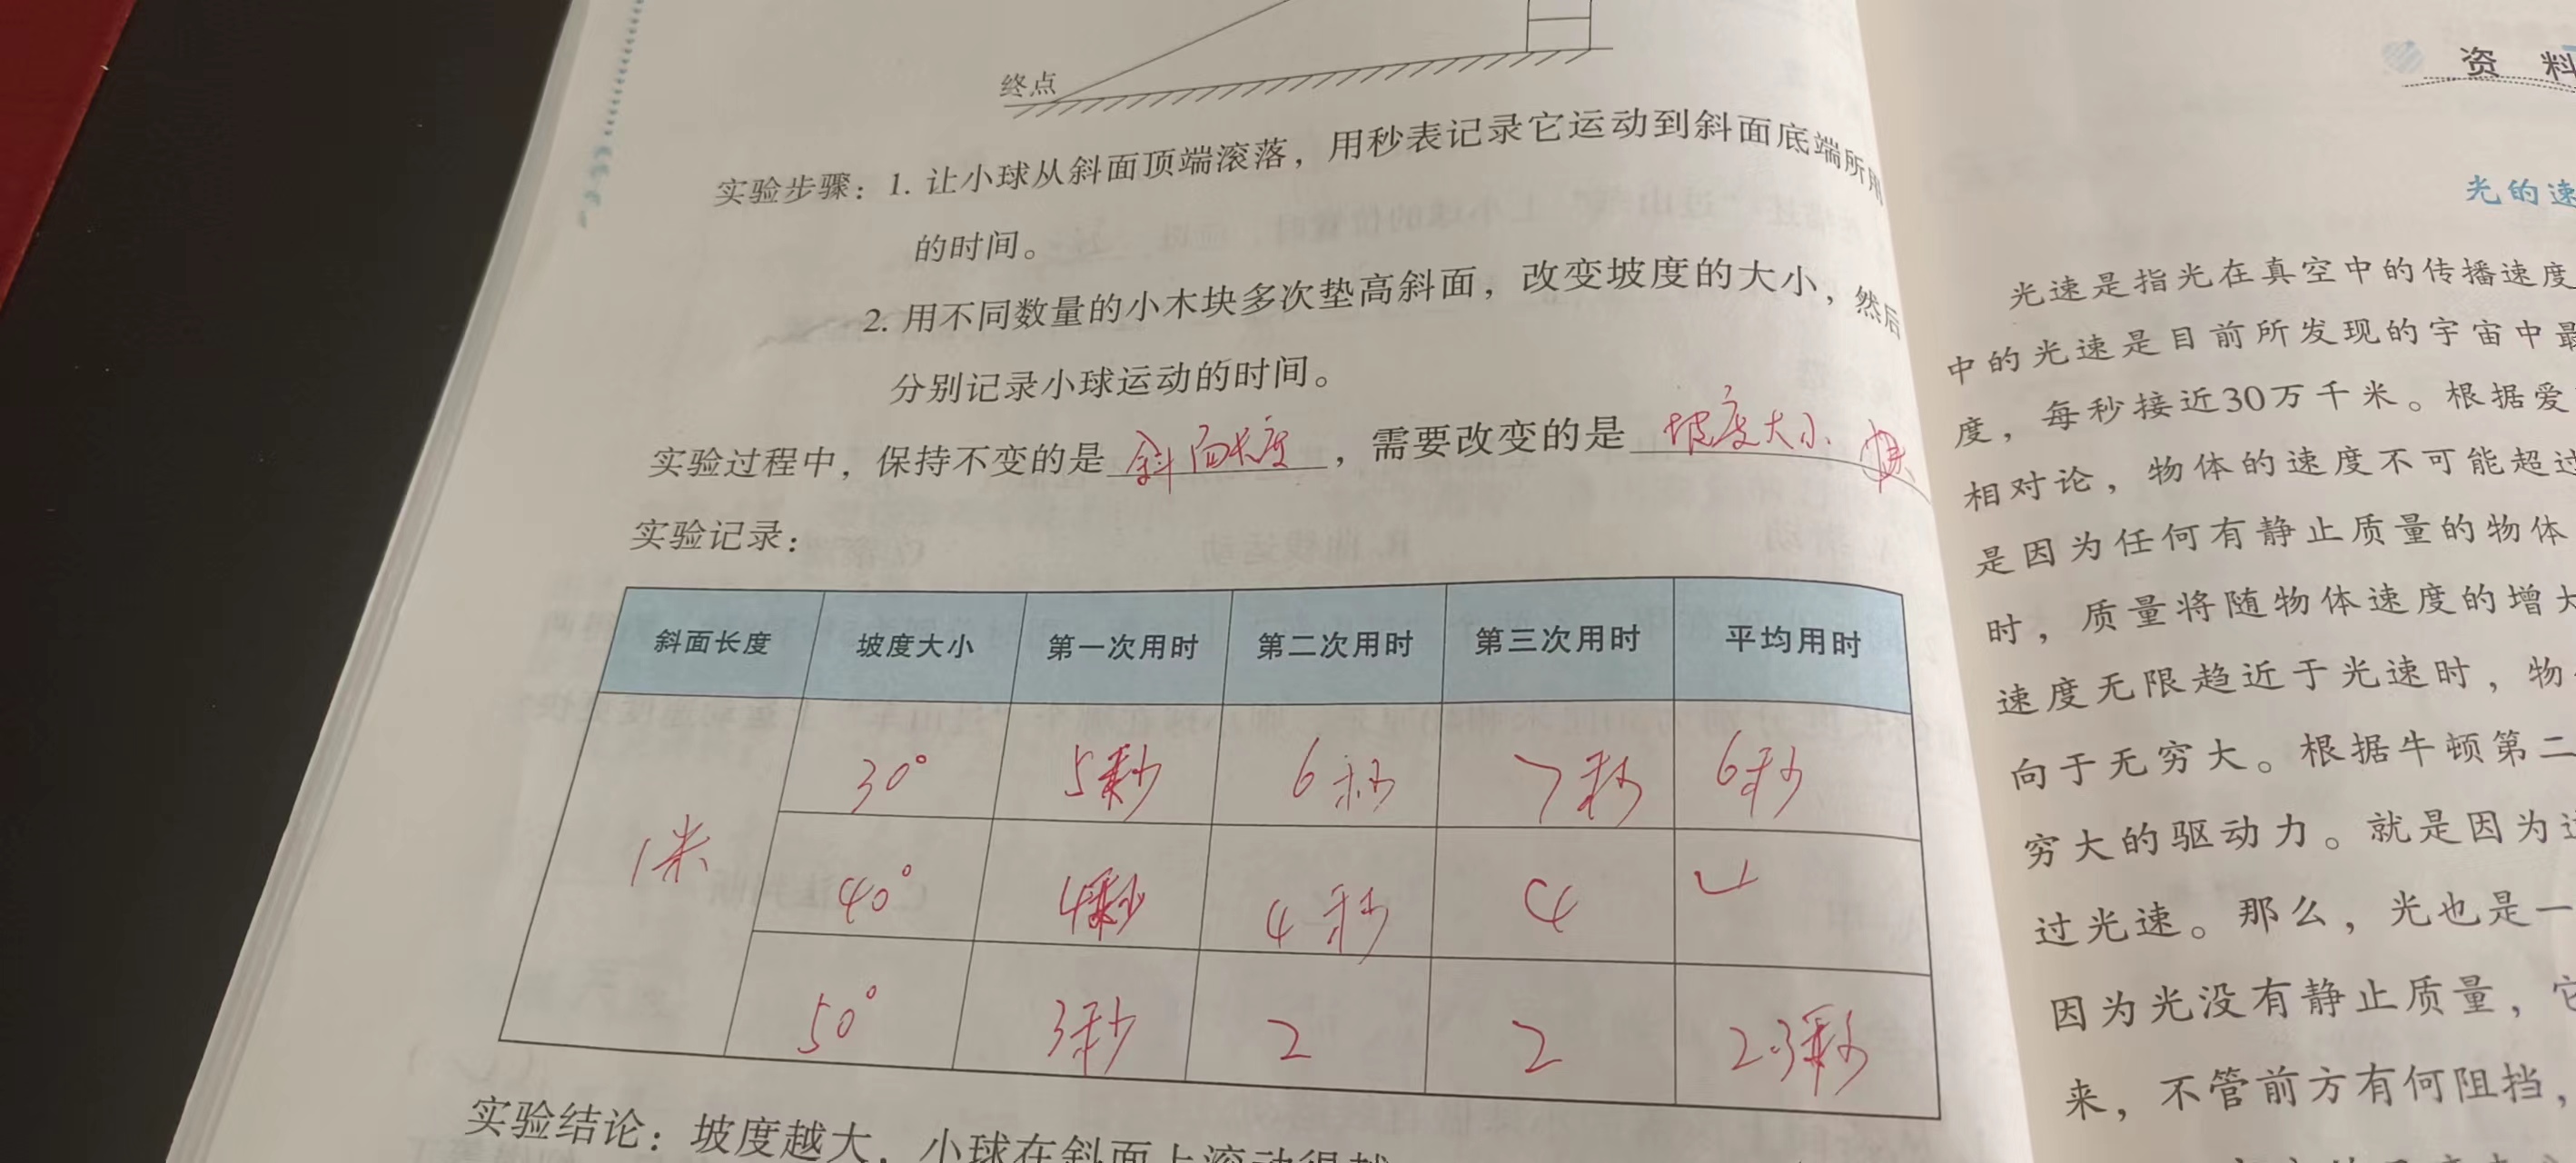 终点
实验步骤：1. 让小球从斜面顶端滚落，用秒表记录它运动到斜面底端所用
的时间。
2. 用不同数量的小木块多次垫高斜面，改变坡度的大小，然后
分别记录小球运动的时间。
实验过程中，保持不变的是 斜面长度 ，需要改变的是 坡度大小
实验记录：
斜面长度 坡度大小 第一次用时 第二次用时 第三次用时 平均用时
1米
30° 5秒 6秒 7秒 6秒
40° 4秒 4秒 4 4
50° 3秒 2 2 2.3秒
实验结论：坡度越大，小球在斜面上滚动得越
资 料
光的速
光速是指光在真空中的传播速度
中的光速是目前所发现的宇宙中最
度，每秒接近30万千米。根据爱
相对论，物体的速度不可能超过
是因为任何有静止质量的物体
时，质量将随物体速度的增大
速度无限趋近于光速时，物
向于无穷大。根据牛顿第二
穷大的驱动力。就是因为这
过光速。那么，光也是一
因为光没有静止质量，它
来，不管前方有何阻挡，